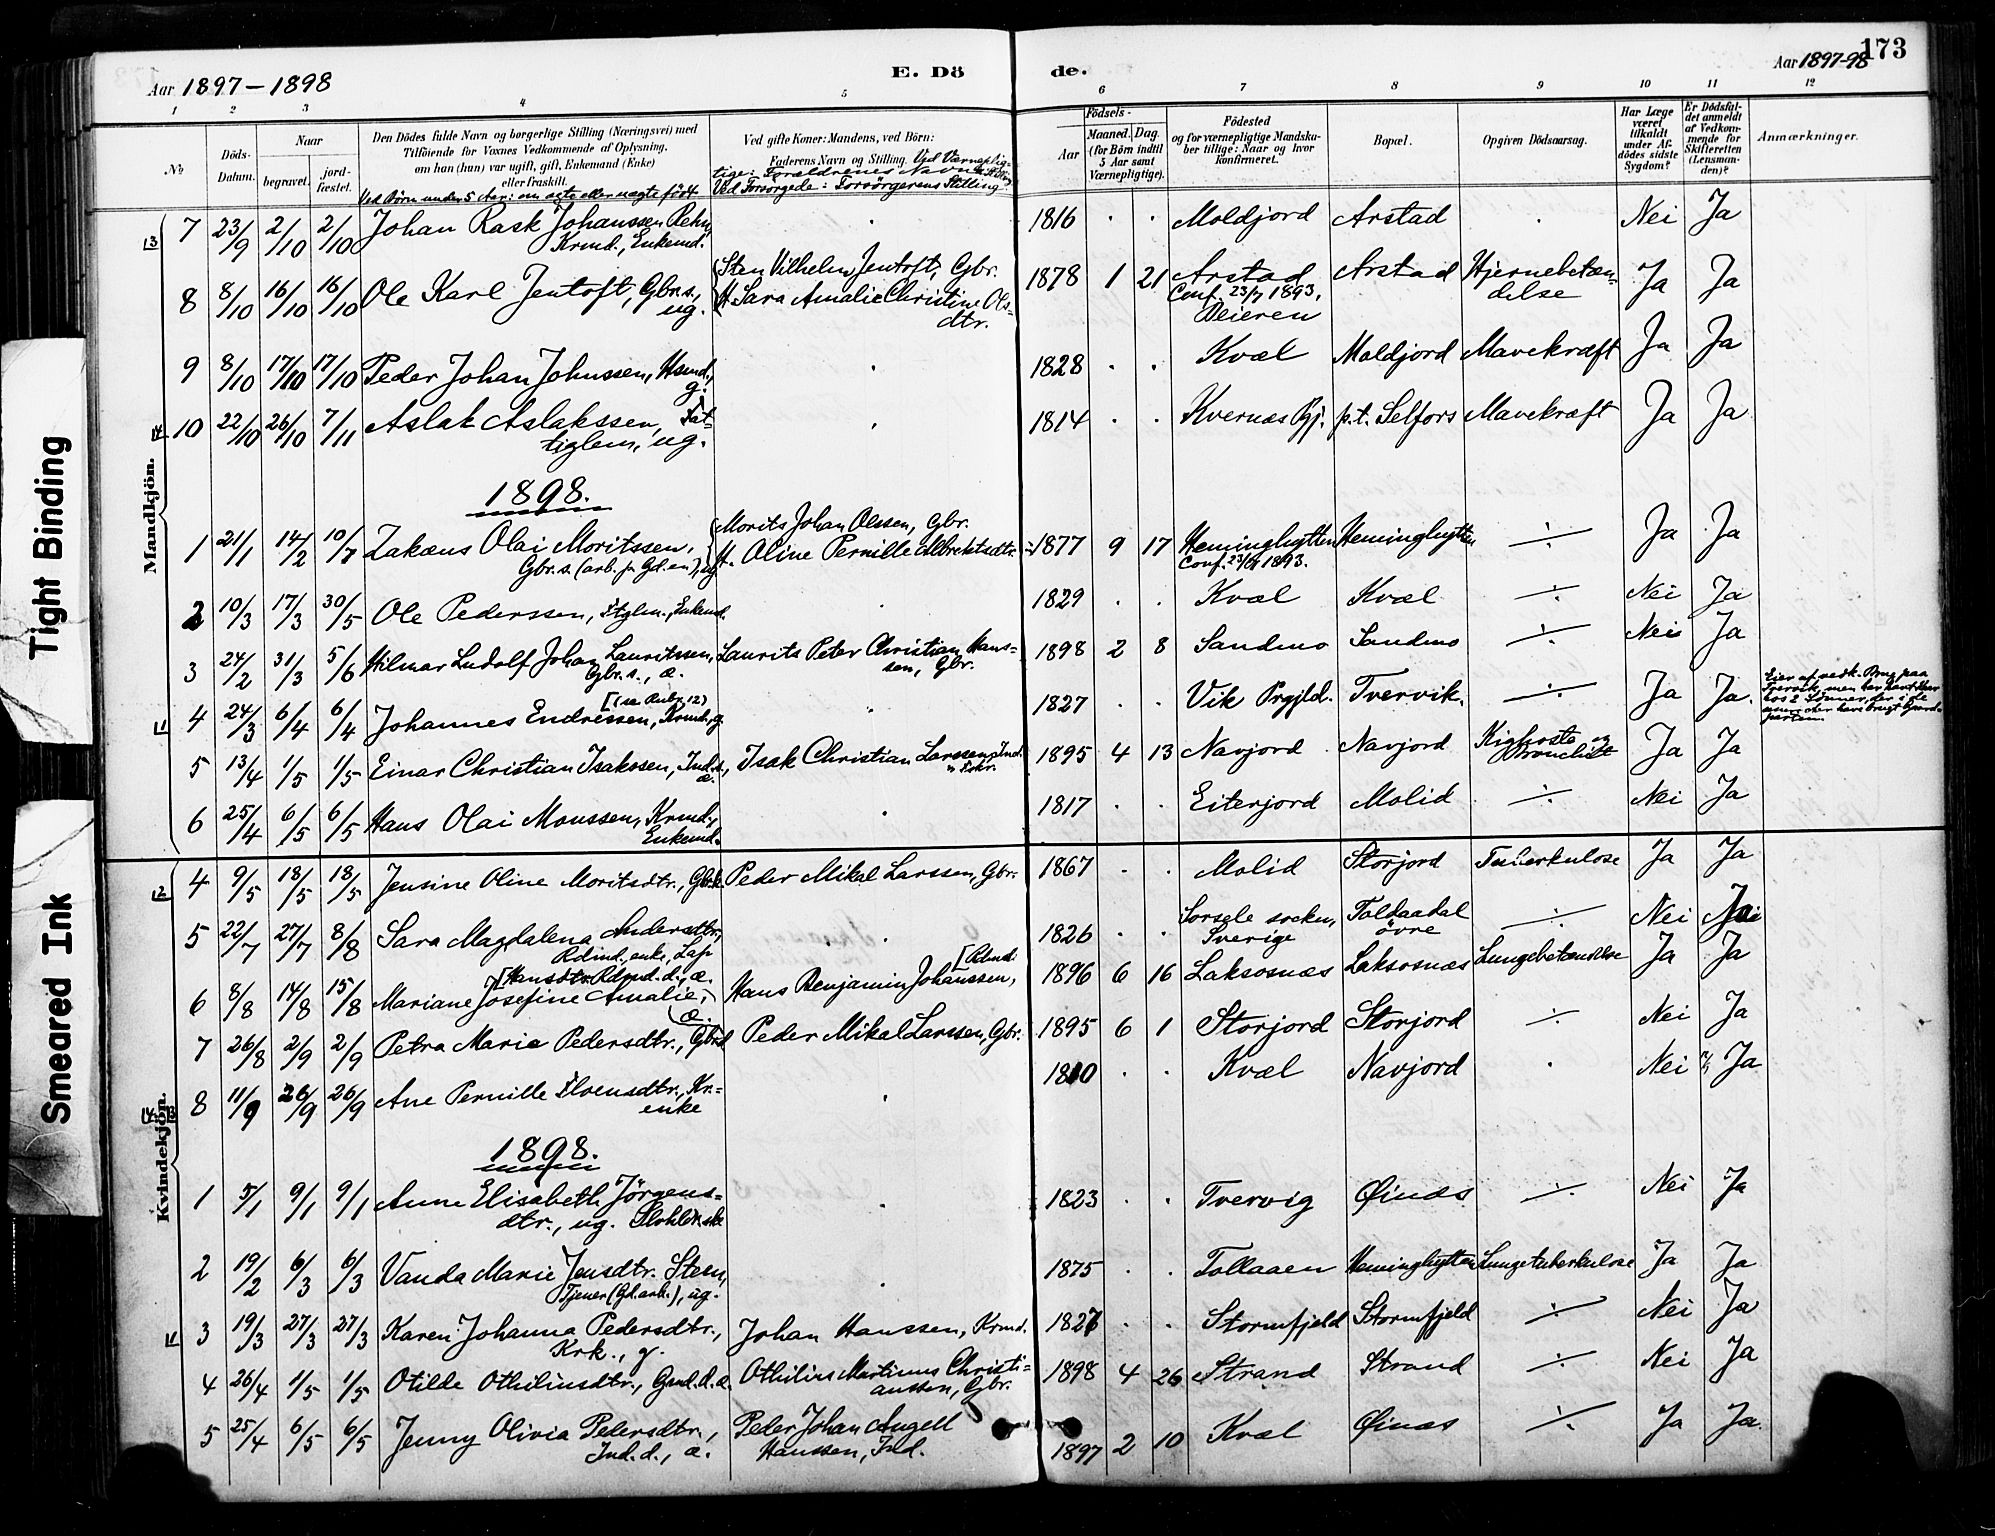 Aar 1897-1898
E. Dö
de.
Aar 1897-98
173
1 2 3 4 5 6 7 8 9 10 11 12
№
Döds-Datum.
Naar
begravet. jord-fæstet.
Den Dödes fulde Navn og borgerlige Stilling (Næringsvei) med
Tilföiende for Voxnes Vedkommende af Oplysning.
om han (hun) var ugift, gift, Enkemand (Enke)
eller fraskilt.
Ved Börn under 5 Aar: om ægte eller uægte födt.
Ved gifte Koner: Mandens, ved Börn:
Faderens Navn og Stilling. Ved Værneplig-
tige: Forældrenes Navn
Ved Forsörgede: Forsörgerens Stilling
Födsels-
Aar
Maaned. Dag.
(for Börn indtil
5 Aar samt
Værnepligtige).
Födested
og for værnepligtige Mandska-
ber tillige: Naar og hvor
konfirmeret.
Bopæl.
Opgiven Dödsaarsag.
Har Læge
været
tilkaldt
under Af-
dödes sidste
Sygdom?
Er Dödsfal-
det anmeldt
af Vedkom-
mende for
Skifteretten
(Lensman-
den)?
Anmærkninger.
Tight Binding
Smeared Ink
Mandkjön.
7 23/9 2/10 2/10 Johan Rask Johanssen Pehn, Krmd., Enkemd. 1816 Moldjord Arstad Nei Ja
8 8/10 16/10 16/10 Ole Karl Jentoft, Gbr.s., ug. Sten Vilhelm Jentoft, Gbr. H. Sara Amalie Christine Ols-dtr. 1878 1 21 Arstad Conf. 23/7 1893. Beieren Arstad Hjernebetæn-delse Ja Ja
9 8/10 17/10 17/10 Peder Johan Johnssen, Hsmd., g. 1828 Kvæl Moldjord Mavekræft Ja Ja
10 22/10 26/10 7/11 Aslak Aslakssen, Fat-tiglem, ug. 1814 Kvernæs Pgj. p.t. Selfors Mavekræft Ja Ja
1898.
1 21/1 14/2 10/7 Zakæus Olai Moritssen, Gbr.s. (arb. p. Gd.en), ug. Morits Johan Olssen, Gbr. H. Oline Pernille Albrektsdtr. 1877 9 17 Heminghytten Conf. 1893. Heminghytten ÷ Ja Ja
2 10/3 17/3 30/5 Ole Pederssen, Ftglm., Enkemd. 1829 Kvæl Kvæl ÷ Nei Ja
3 24/2 31/3 5/6 Hilmar Ludolf Johan Lauritssen, Gbr.s., æ. Laurits Peter Christian Hans-sen, Gbr. 1898 2 8 Sandmo Sandmo ÷ Nei Ja
4 24/3 6/4 6/4 Johannes Endressen, Krmd., g. [(se Rubr. 12) 1827 Vik Prgjld. Tvervik. ÷ Ja Ja.
5 13/4 1/5 1/5 Einar Christian Isakssen, Ind.s., æ. Isak Christian Larssen, Ind. 1895 4 13 Navjord Navjord Kighoste og Bronchit Ja Ja
6 25/4 6/5 6/5 Hans Olai Monssen, Krmd., Enkemd. 1817 Eiterjord Molid ÷ Nei Ja
Kvindekjön.
4 9/5 18/5 18/5 Jensine Oline Moritsdtr., Gbrk. Peder Mikal Larssen, Gbr. 1867 Molid Storjord Tuberkulose Ja Ja
5 22/7 27/7 8/8 Sara Magdalena Andersdtr., Rdind., enke, Lap 1826 Sorsele socken, Sverige Toldaadal övre ÷ Nei
6 8/8 14/8 15/8 Mariane Josefine Amalie, [Hansdtr. Rdmd.d., æ. Hans Benjamin Johanssen, [Rdmd. 1896 6 16 Laksosnæs Laksosnæs Lungebetændelse Ja Ja
7 26/8 2/9 2/9 Petra Marie Pedersdtr., Gbrd. Peder Mikal Larssen, Gbr. 1895 6 1 Storjord Storjord ÷ Nei Ja
8 11/9 26/9 26/9 Ane Pernille Elvensdtr., Kr.-enke 1810 Kvæl Navjord Nei Ja
1898.
1 5/1 9/1 9/1 Anne Elisabeth Jörgens-dtr., ug. 1823 Tvervig Øinæs ÷ Nei Ja
2 19/2 6/3 6/3 Vanda Marie Jensdtr. Steen, Tjener (Gd.arb.), ug. 1875 Tollaaen Heminghytten Lungetuberkulose Ja Ja
3 19/3 27/3 27/3 Karen Johanna Pedersdtr., Krk., g. Johan Hanssen, Krmd. 1827 Stormfjeld Stormfjeld ÷ Nei Ja
4 26/4 1/5 1/5 Otilde Othiliusdtr., Gmd.d. æ. Othilius Martinus Christi-anssen, Gbr. 1898 4 26 Strand Strand ÷ Nei Ja
5 25/4 6/5 6/5 Jenny Olivia Pedersdtr., Ind.d., æ. Peder Johan Angell Hanssen, Ind. 1897 2 10 Kvæl Øinæs ÷ Ja Ja.